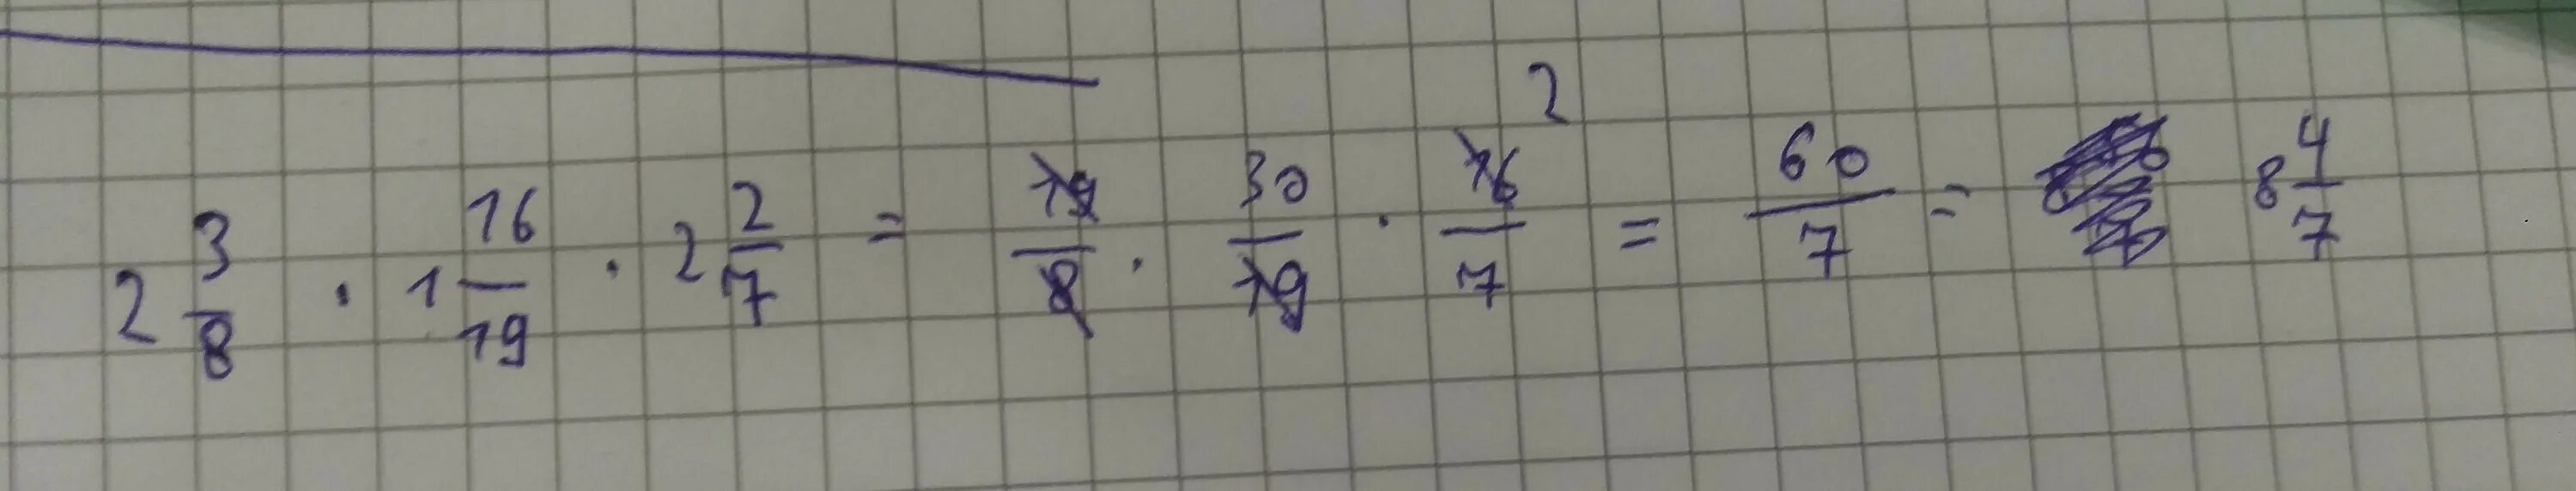 2 3/8 · 1 16/19 · 2 2/7 = 19/8 · 30/19 · 16/7 2 = 60/7 = 8 4/7